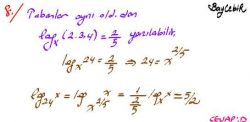 8./ Tabanlar aynı old. dan Baylebik
logₓ(2.3.4) = 2/5 yazılabilir.
logₓ24 = 2/5 ⇒ 24 = x^(2/5)
log₂₄x = log_(x^(2/5)) x = 1/(2/5) logₓx = 5/2
CEVAP:D